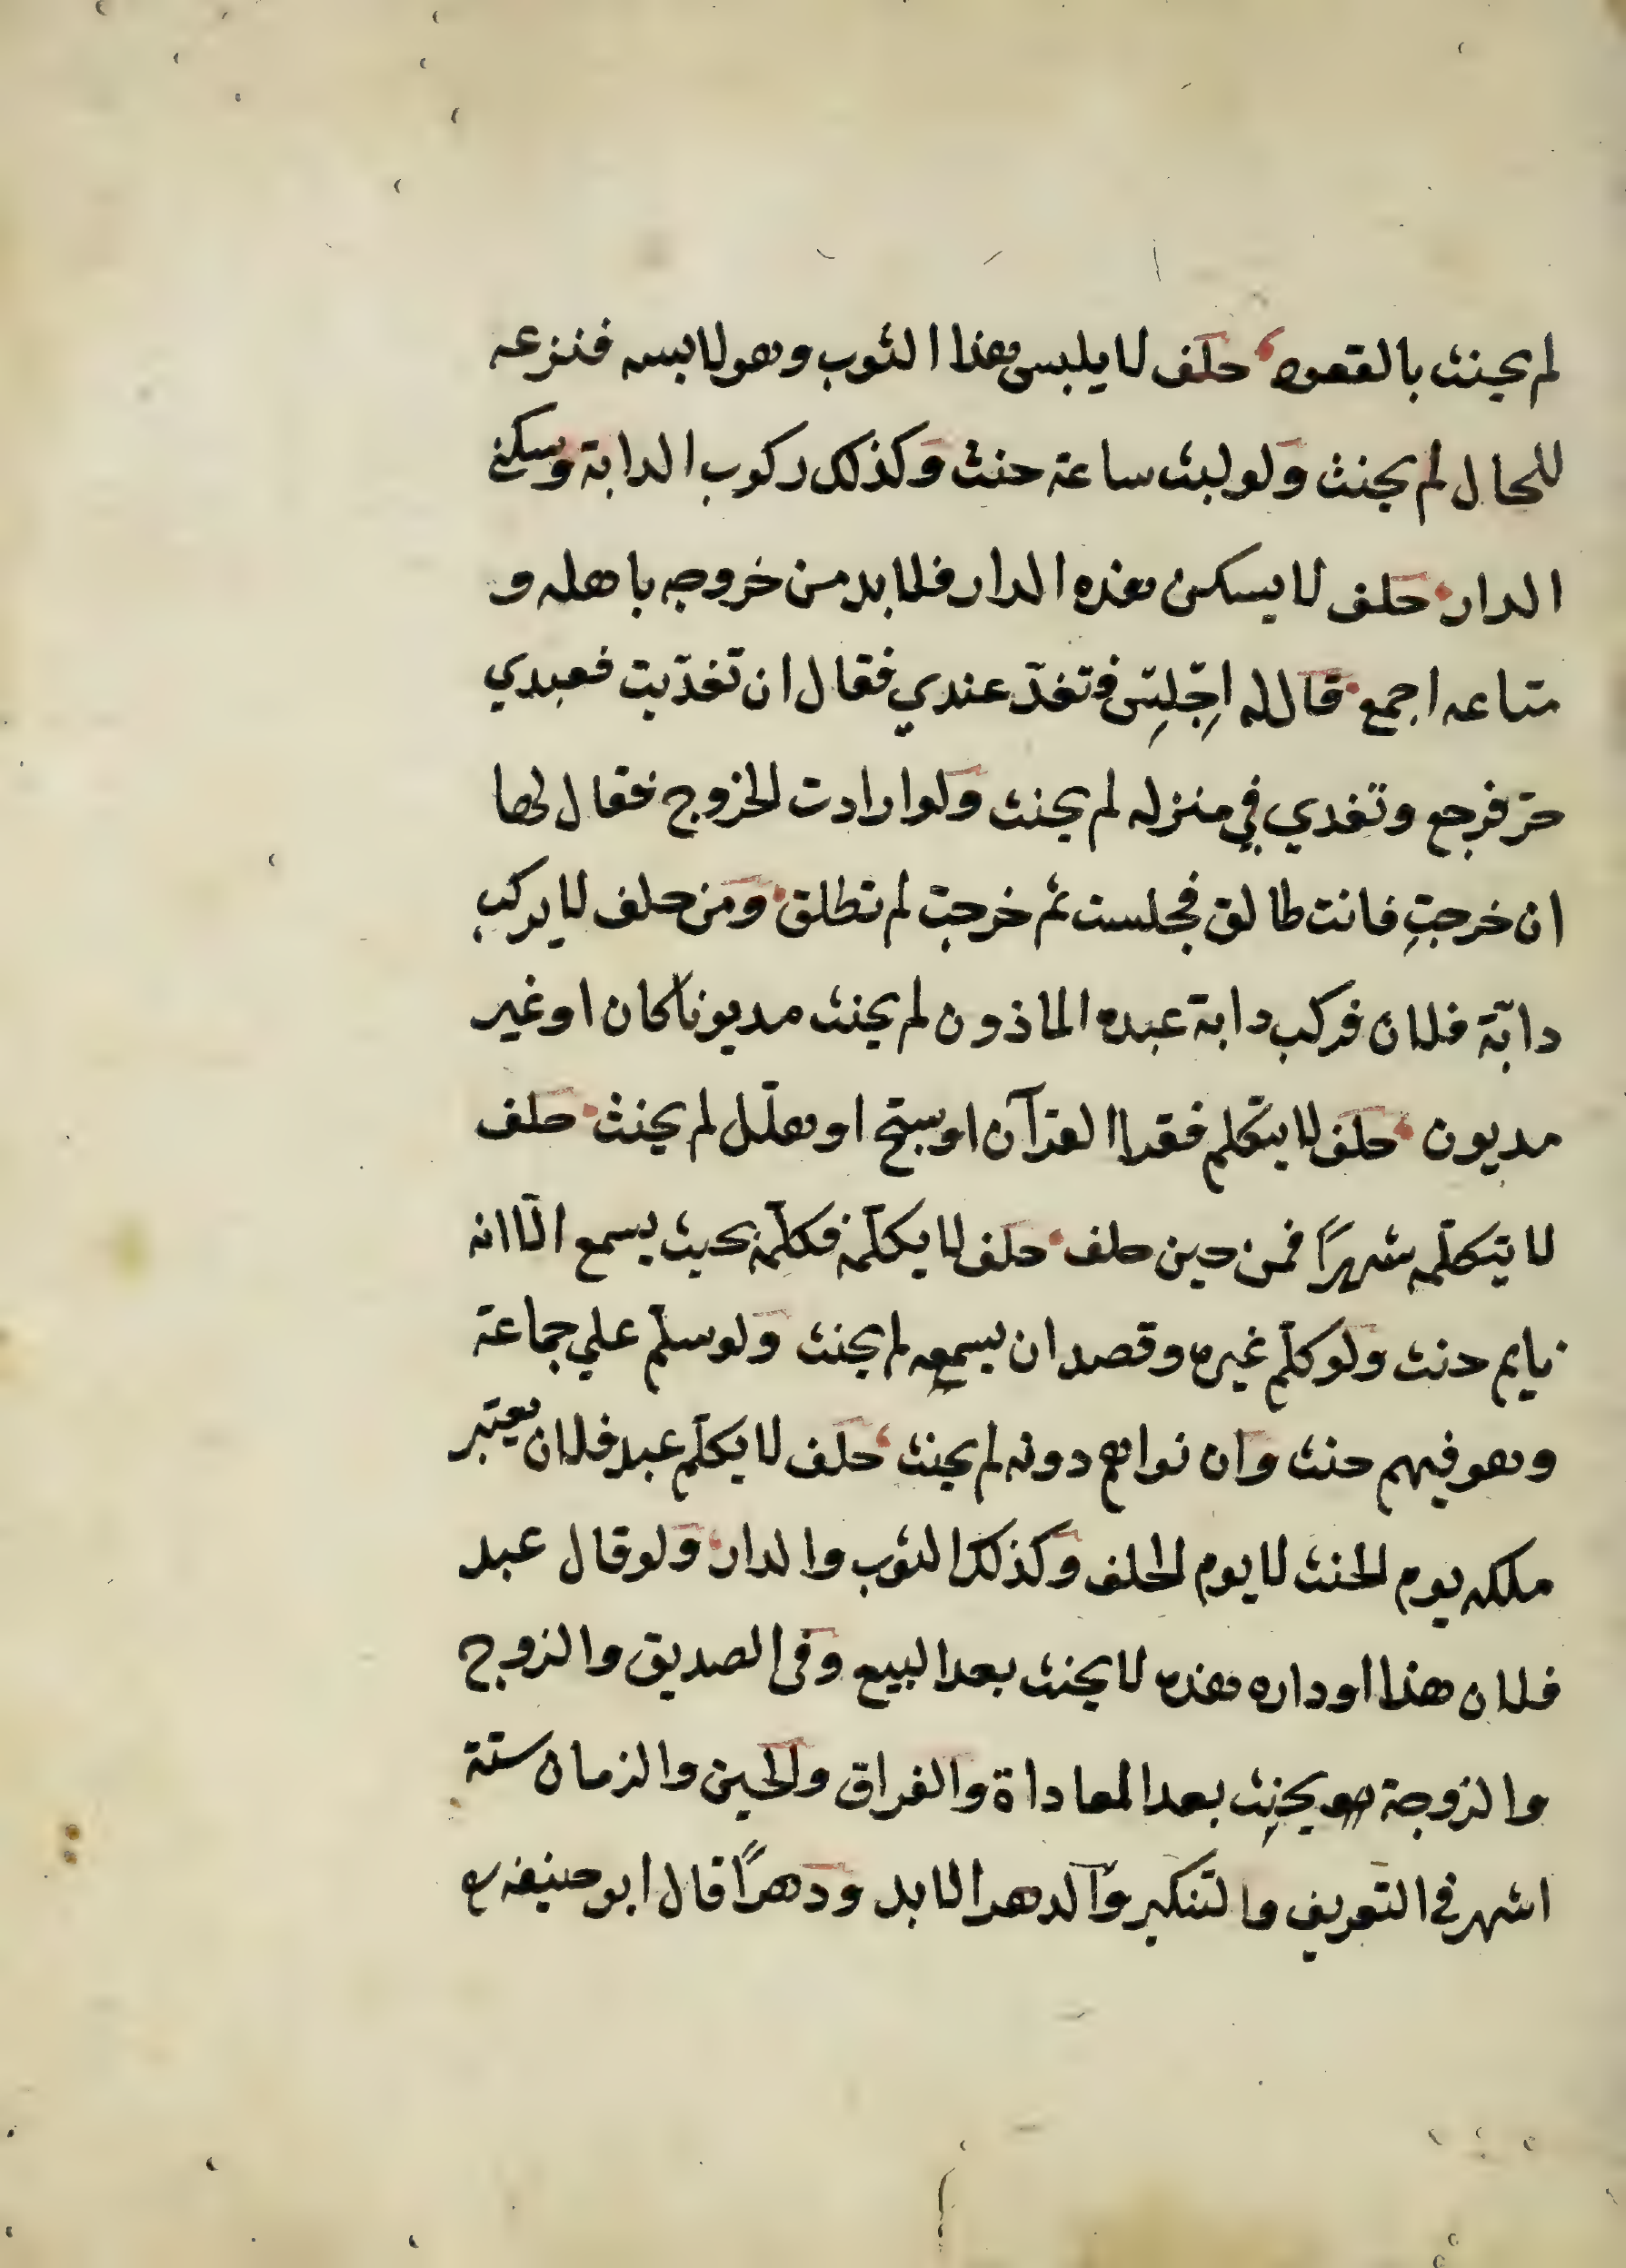 لم يحنث بالقعود حلف لا يلبس هذا الثوب وهو لابسه فنزعه
للحال لم يحنث ولو لبث ساعة حنث وكذلك ركوب الدابة وسكنى
الدار حلف لا يسكن هذه الدار فلا بد من خروجه باهله و
متاعه اجمع قال له اجلس فتغدّ عندي فقال ان تغدّيت فعبدي
حرّ فرجع وتغدي في منزله لم يحنث ولو ارادت الخروج فقال لها
ان خرجتِ فانت طالق فجلست ثم خرجت لم تطلق ومن حلف لا يركب
دابّة فلان فركب دابة عبده الماذون لم يحنث مديونا كان او غير
مديون حلف لا يتكلم فقرا القرآن او سبّح او هلّل لم يحنث حلف
لا يتكلّمه شهرًا فمن حين حلف حلف لا يكلّمه فكلّمه بحيث يسمع الّا انه
نايم حنث ولو كلّم غيره وقصد ان يسمعه لم يحنث ولو سلّم علي جماعة
وهو فيهم حنث وان نواهم دونه لم يحنث حلف لا يكلّم عبد فلان يعتبر
ملكه يوم الحنث لا يوم الحلف وكذلك الثوب والدار ولو قال عبد
فلان هذا او داره هذه لا يحنث بعد البيع وفى الصديق والزوج
والزوجة يحنث بعد المعاداة والفراق والحين والزمان ستة
اشهر في التعريف والتنكير والدهر الابد ودهرًا قال ابو حنيفه